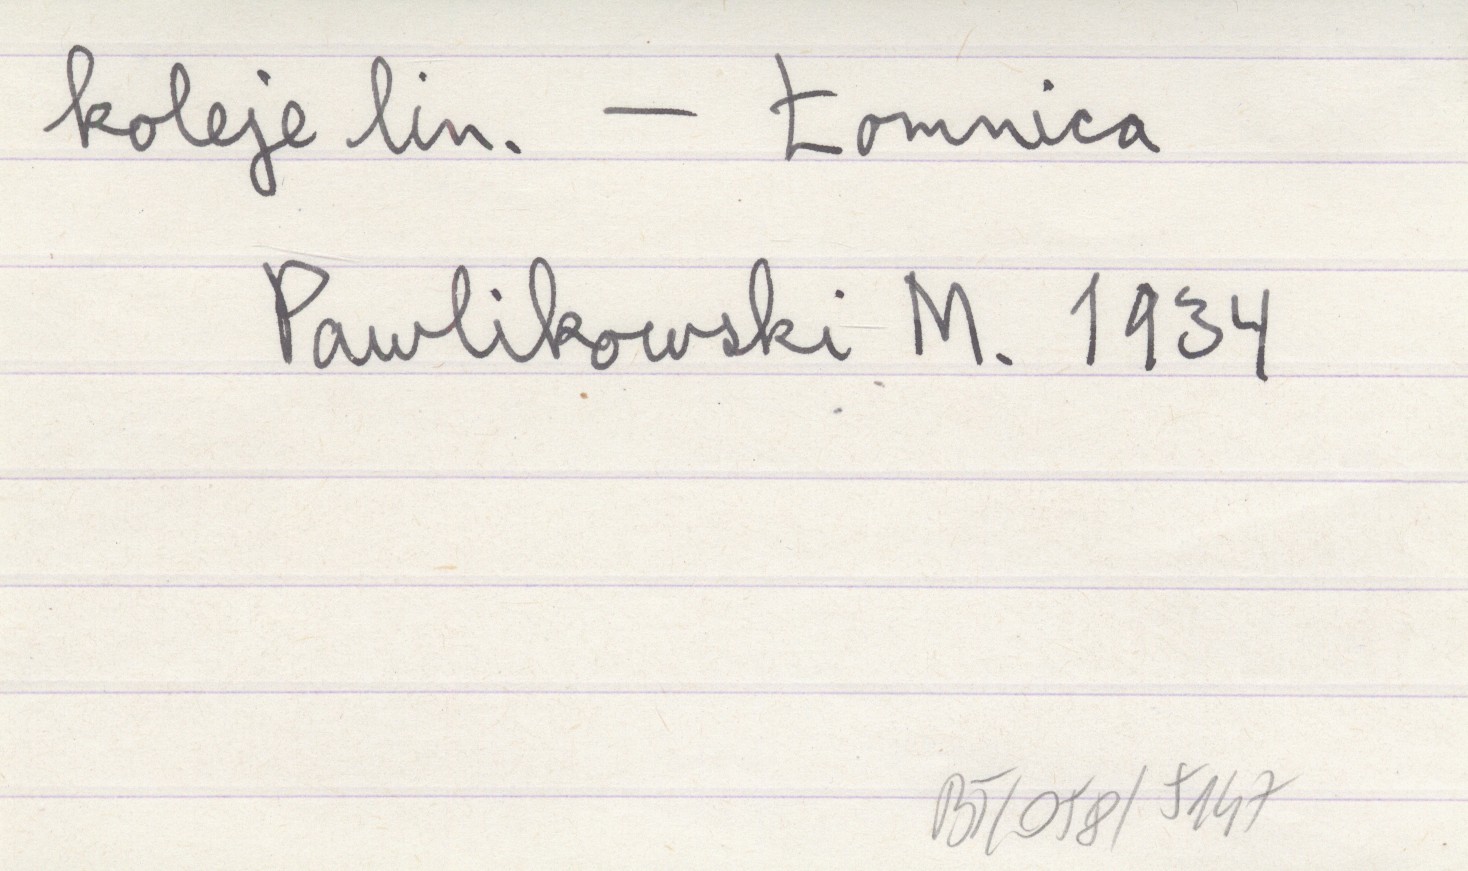 koleje lin. — Łomnica
Pawlikowski M. 1934
BT/058/5147